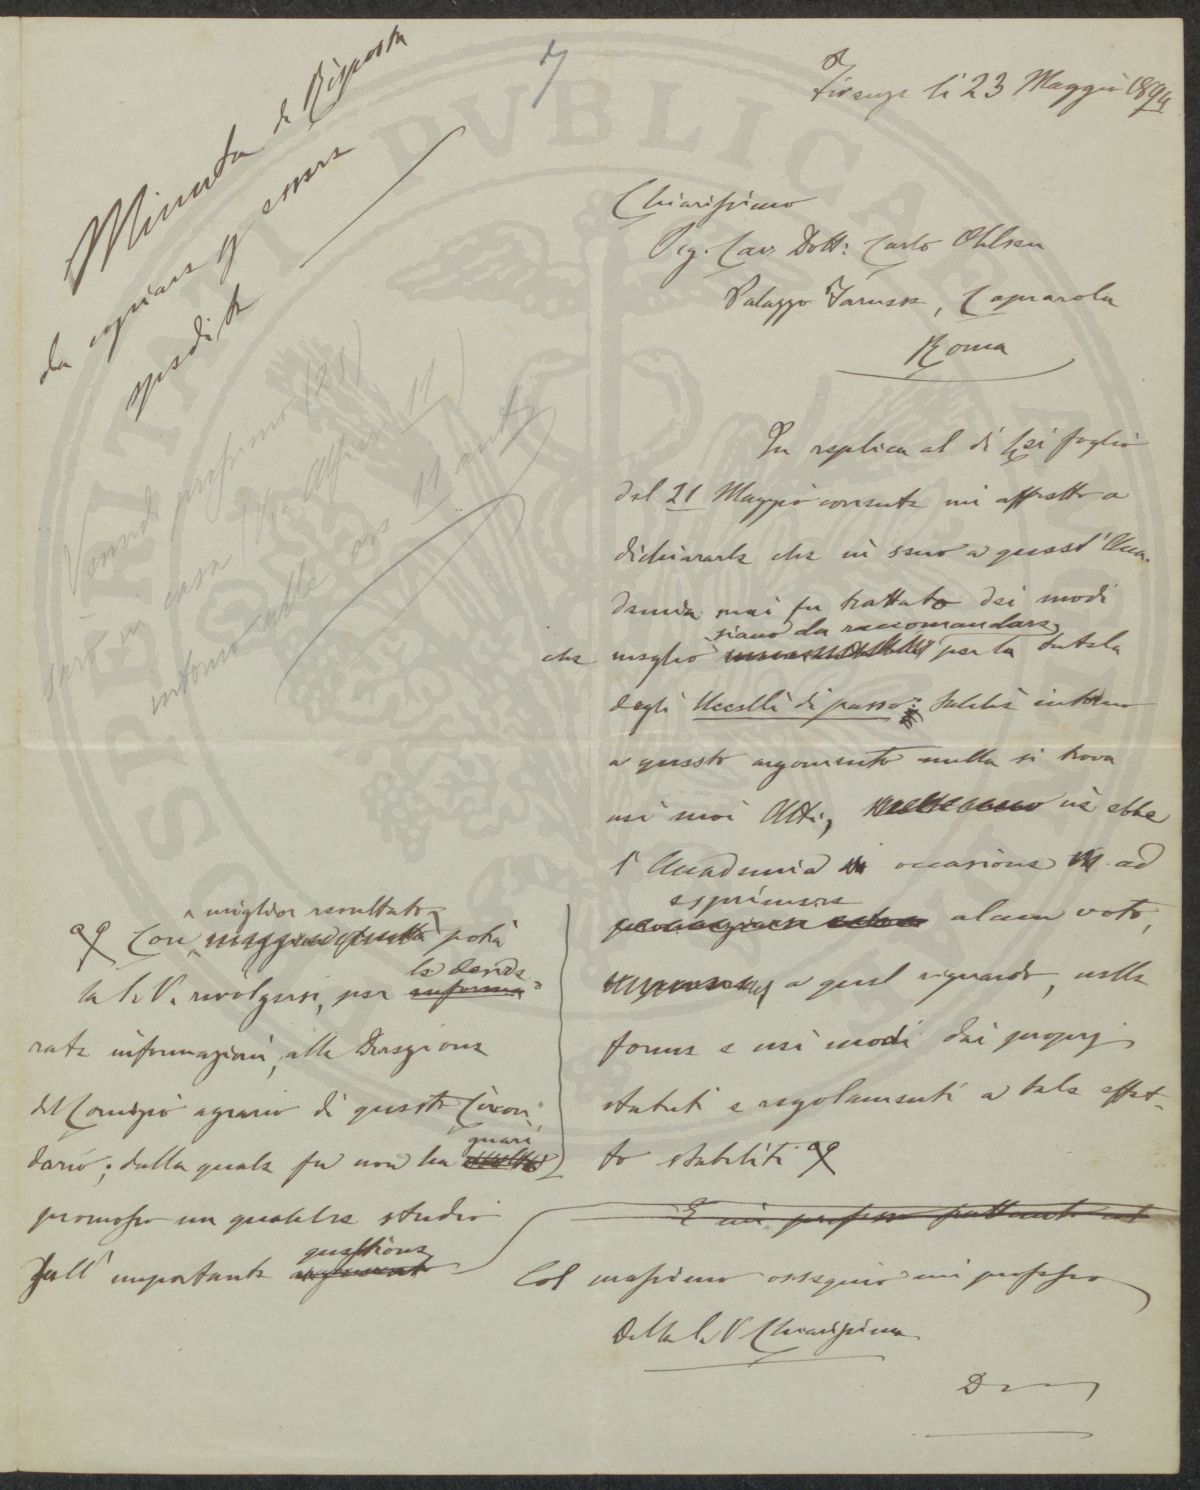 Minuta di Risposta
da copiare ed essere
spedita
7
Firenze li 23 Maggio 1894
Chiarissimo
Sig. Cav. Dott: Carlo Ohlsen
Palazzo Farnese, Caprarola
Roma
Venerdì prossimo (25)
sarò in casa Via Alfieri 11
intorno alle ore 11 ant
In replica al di Lei foglio
del 21 Maggio corrente mi affretto a
dichiararle che in seno a quest' Acca-
demia mai fu trattato dei modi
siano da raccomandare
che meglio per la tutela
degli Uccelli di passo; talchè intorno
a questo argomento nulla si trova
nei suoi Atti, nè ebbe
l' Accademia occasione ad
esprimere
alcun voto,
a quel riguardo, nelle
forme e nei modi dai proprj
statuti e regolamenti a tale effet-
to stabiliti
E mi
miglior resultato
Con potrà
la S. V. rivolgersi, per le deside-
rate informazioni, alla Direzione
del Comizio agrario di questo Circon-
dario; dalla quale fu non ha guari
promosso un qualche studio
sull' importante questione
Col massimo ossequio mi professo
Della S. V. Chiarissima
D